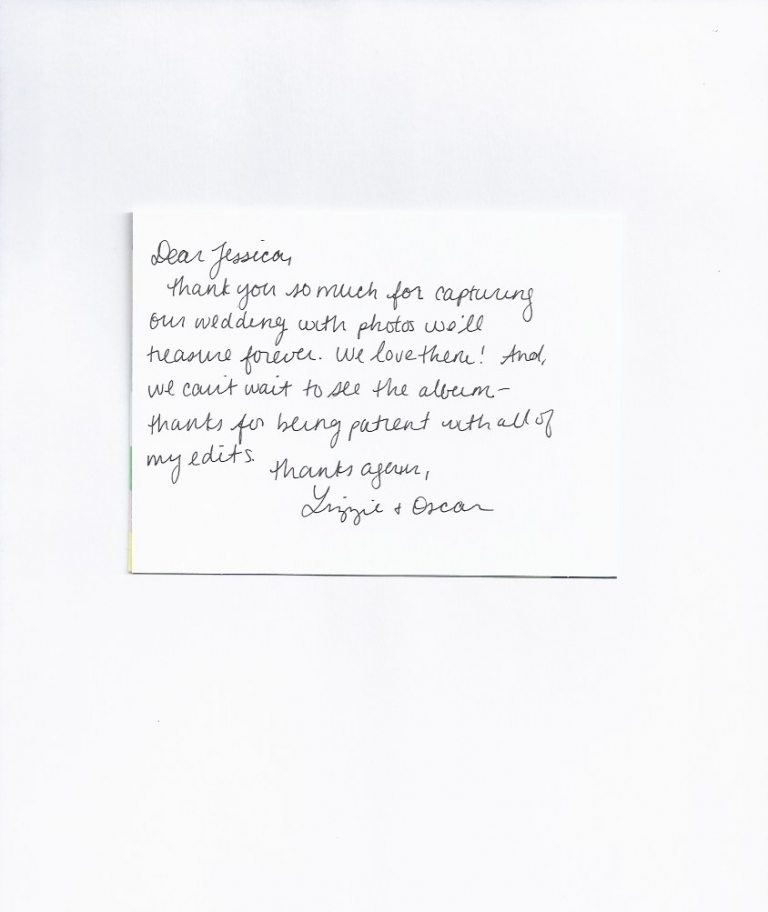 Dear Jessica,
Thank you so much for capturing
our wedding with photos we'll
treasure forever. We love them! And,
we can't wait to see the album-
thanks for being patient with all of
my edits.
Thanks again,
Lizzie + Oscar